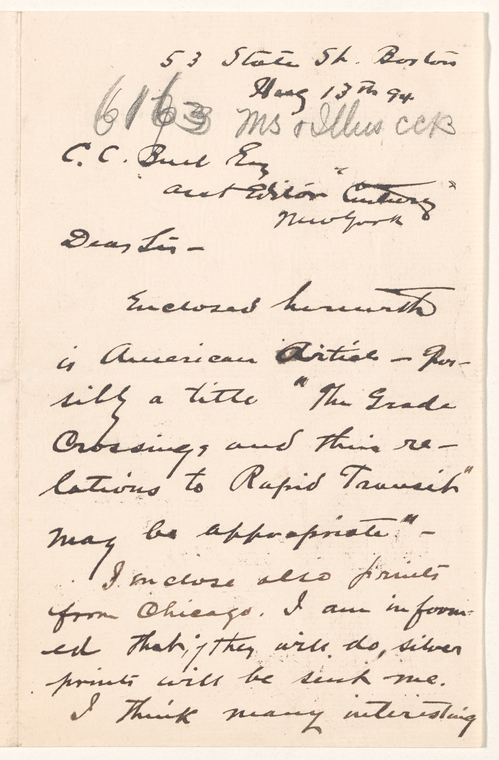 53 State St. Boston
Aug 13th 94
6163 MS & Illus CCB
C. C. Buel Esq
asst Editor "Century"
New York
Dear Sir —
Enclosed herewith
is American Article — Pos-
sibly a title "The Grade
Crossings and their re-
lations to Rapid Transit"
may be appropriate" —
I enclose also prints
from Chicago. I am inform-
ed that, if they will do, silver
prints will be sent me.
I think many interesting